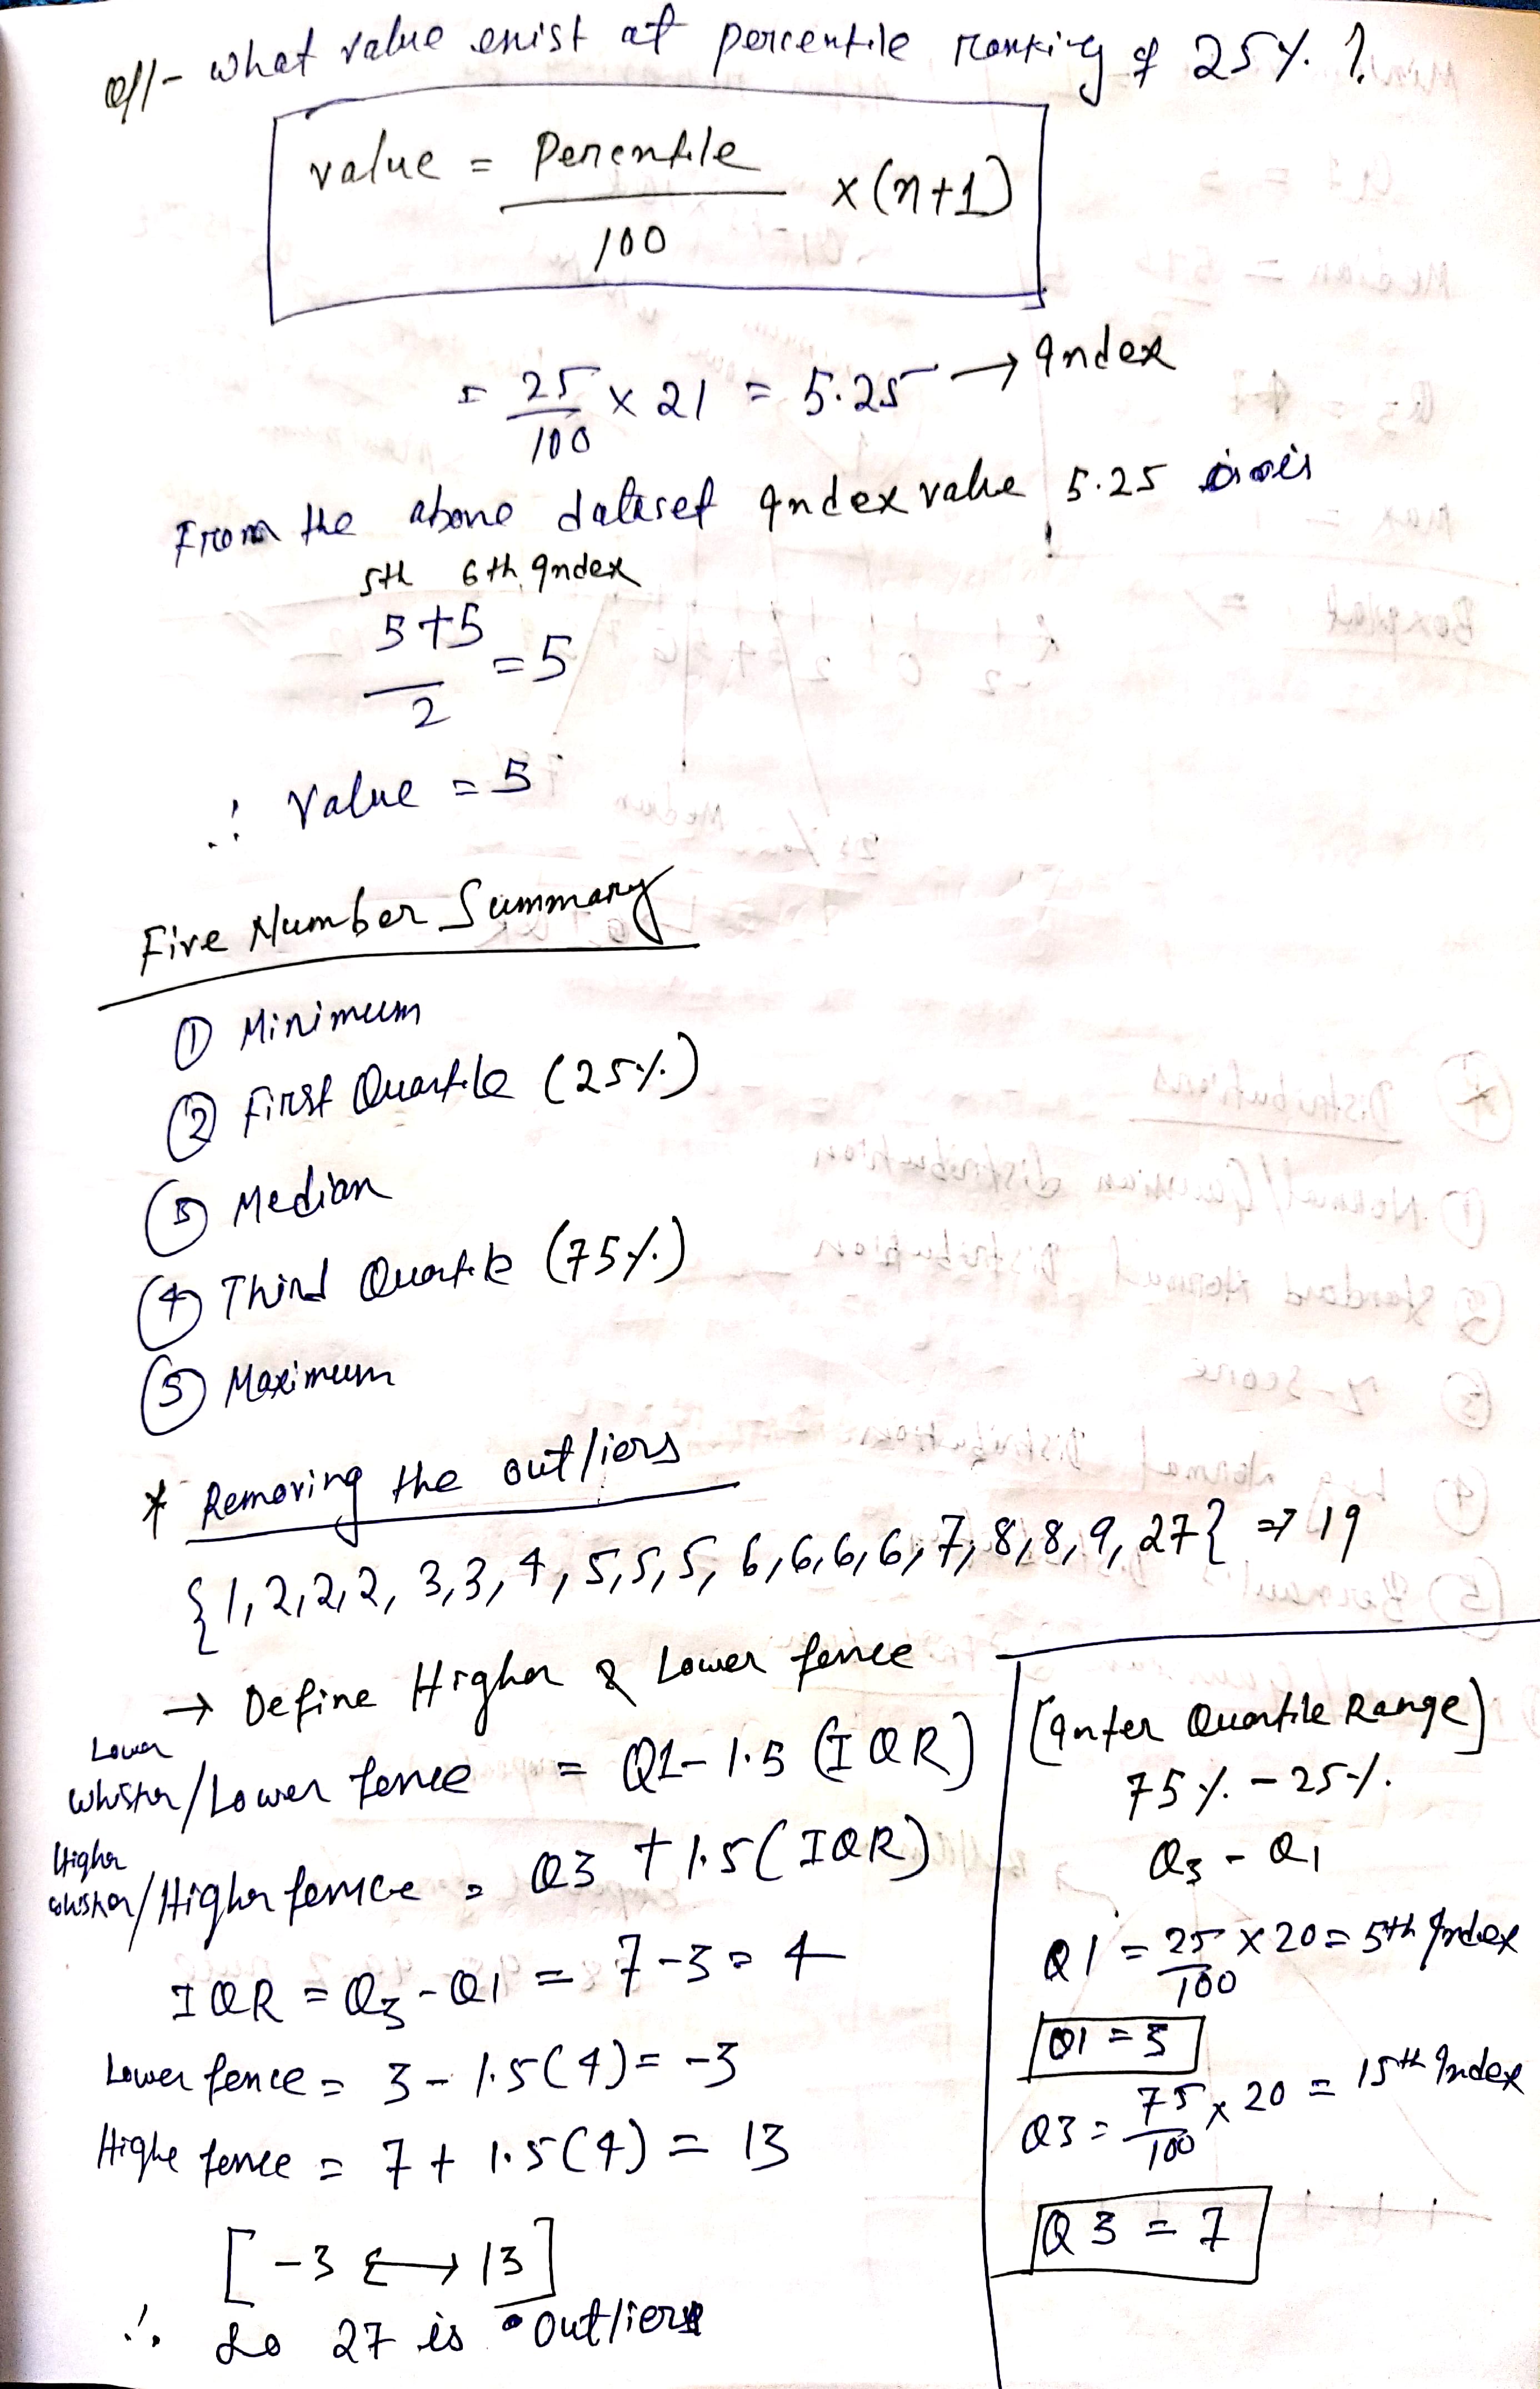 Q11- what value exist at percentile ranking of 25%. ?
value = Percentile / 100 x (n+1)
= 25/100 x 21 = 5.25 → Index
From the above dataset Index value 5.25 is
5th 6th Index
5+5 / 2 = 5
∴ Value = 5
Five Number Summary
① Minimum
② First Quartile (25%)
③ Median
④ Third Quartile (75%)
⑤ Maximum
* Removing the outliers
{1,2,2,2, 3,3,4,5,5,5, 6,6,6,6,7,8,8,9,27} => 19
→ Define Higher & Lower fence
Lower whisker/Lower fence = Q1-1.5 (IQR)
Higher whisker/Higher fence = Q3 + 1.5(IQR)
IQR = Q3-Q1 = 7-3 = 4
Lower fence = 3 - 1.5(4) = -3
Highe fence = 7 + 1.5(4) = 13
[-3 ↔ 13]
∴ So 27 is outlier
(Inter Quartile Range)
75% - 25%
Q3 - Q1
Q1 = 25/100 x 20 = 5th Index
Q1 = 3
Q3 = 75/100 x 20 = 15th Index
Q3 = 7